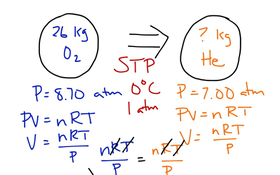 26 kg
O₂
? kg
He
STP
0°C
1 atm
P = 8.70 atm
PV = nRT
V = nRT/P
P = 7.00 atm
PV = nRT
V = nRT/P
nRT/P = nRT/P